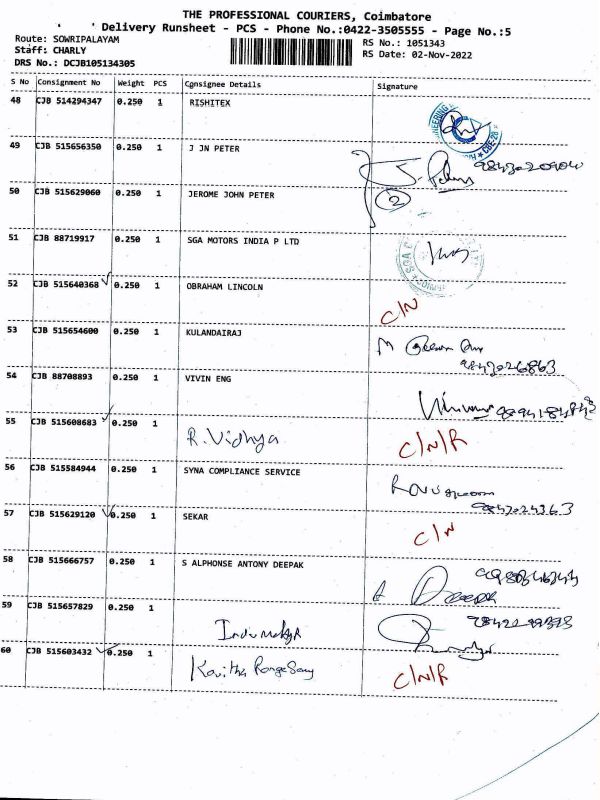 THE PROFESSIONAL COURIERS, Coimbatore
' ' Delivery Runsheet - PCS - Phone No.:0422-3505555 - Page No.:5
Route: SOWRIPALAYAM
Staff: CHARLY
DRS No.: DCJB105134305
RS No.: 1051343
RS Date: 02-Nov-2022
S No Consignment No Weight PCS Consignee Details Signature
48 CJB 514294347 0.250 1 RISHITEX
49 CJB 515656350 0.250 1 J JN PETER
50 CJB 515629060 0.250 1 JEROME JOHN PETER 2
51 CJB 88719917 0.250 1 SGA MOTORS INDIA P LTD
52 CJB 515640368 ✓ 0.250 1 OBRAHAM LINCOLN C/N
53 CJB 515654600 0.250 1 KULANDAIRAJ
54 CJB 88708893 0.250 1 VIVIN ENG
55 CJB 515608683 ✓ 0.250 1 R. Vidhya C/N/R
56 CJB 515584944 0.250 1 SYNA COMPLIANCE SERVICE
57 CJB 515629120 ✓ 0.250 1 SEKAR C/N
58 CJB 515666757 0.250 1 S ALPHONSE ANTONY DEEPAK
59 CJB 515657829 0.250 1
60 CJB 515603432 ✓ 0.250 1 Kavitha C/N/R